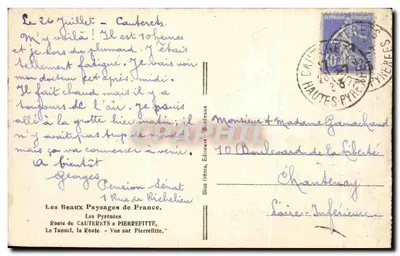 Le 26 Juillet - Cauterets.
M'y voilà! Il est 10 heures
et je sors du plumard. J'étais
tellement fatigué. Je vais voir
mon docteur cet après-midi.
Il fait chaud mais il y a
toujours de l'air. Je suis
allé à la grotte hier matin; il
n'y avait pas trop de monde
mais ça va commencer à venir.
A bientôt
Georges
Pension Sénat
1 Rue de Richelieu
Les Beaux Paysages de France.
Les Pyrénées
Route de CAUTERETS à PIERREFITTE,
Le Tunnel, la Route. - Vue sur Pierrefitte.
Monsieur et Madame
10 Boulevard de la Liberté
Chantenay
Loire-Inférieure
CAUTERETS
HAUTES-PYRÉNÉES